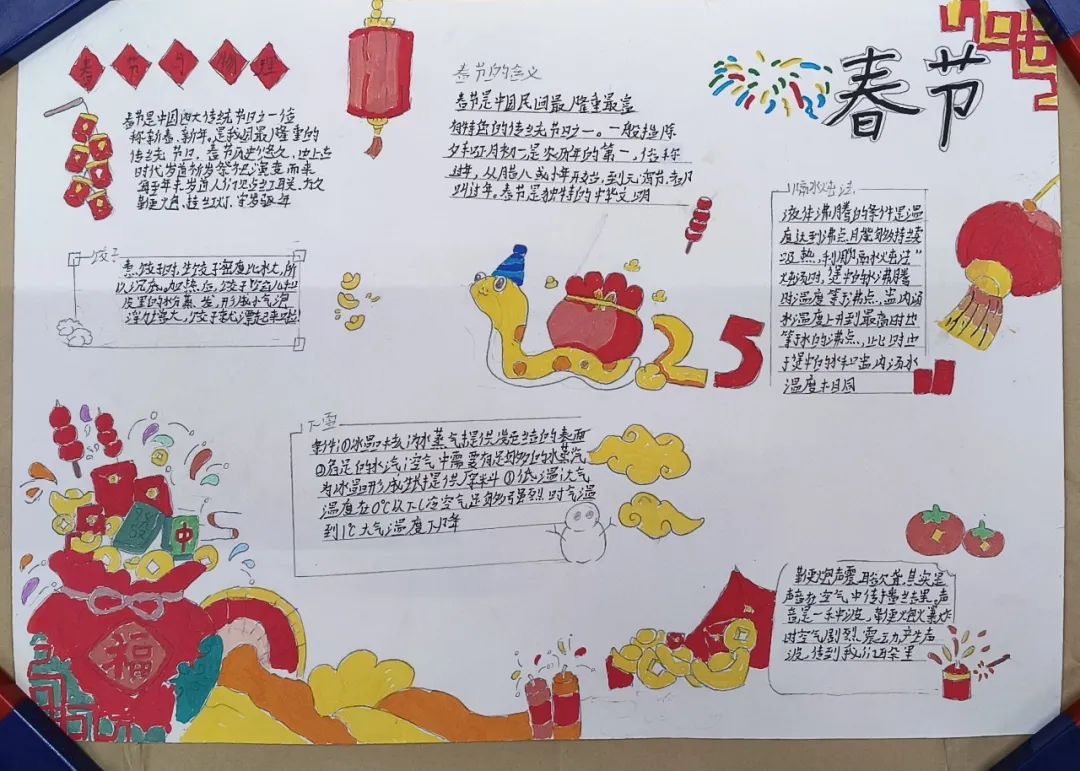 春节与物理
春节是中国四大传统节日之一俗
称新春、新年。是我国最隆重的
传统节日。春节历史悠久,由上古
时代岁首祈岁祭祀演变而来
鞭炮、挂红灯、守岁
春节的含义
春节是中国民间最隆重最富
有特色的传统节日之一。一般指除
夕和正月初一,是农历年的第一,俗称
过年,从腊八或小年开始,到元宵节,都
叫过年。春节是独特的中华文明
春节
隔水蒸法
液体沸腾的条件是温
度达到沸点,且能够持续
吸热,利用“隔水蒸法”
炖汤时,煲中的水沸腾
时温度等于沸点,盅内汤
水温度上升到最高时也
等于水的沸点,此时由
于煲中的水和盅内汤水
温度相同
饺子
煮饺子时,生饺子密度比水大,所
以沉底。加热后,饺子
皮里的水分蒸发,形成小气泡
浮力增大,饺子就漂起来啦!
25
下雪
条件①冰晶核为水蒸气提供凝结的表面
②充足的水汽:空气中需要有足够的水蒸汽
为冰晶形成提供原料①低温大气
温度在0℃以下
到1℃大气温度下降
中
福
鞭炮声震耳欲聋,其实是
声音在空气中传播结果。声
音是一种波,鞭炮爆炸
时空气剧烈震动产生声
波,传到我们耳朵里